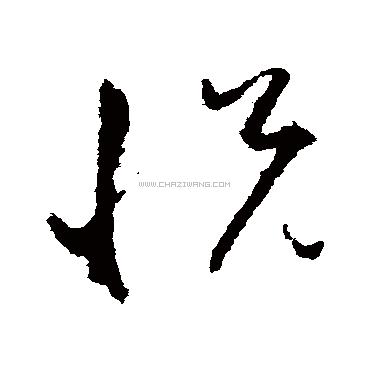 悦
WWW.CHAZIWANG.COM